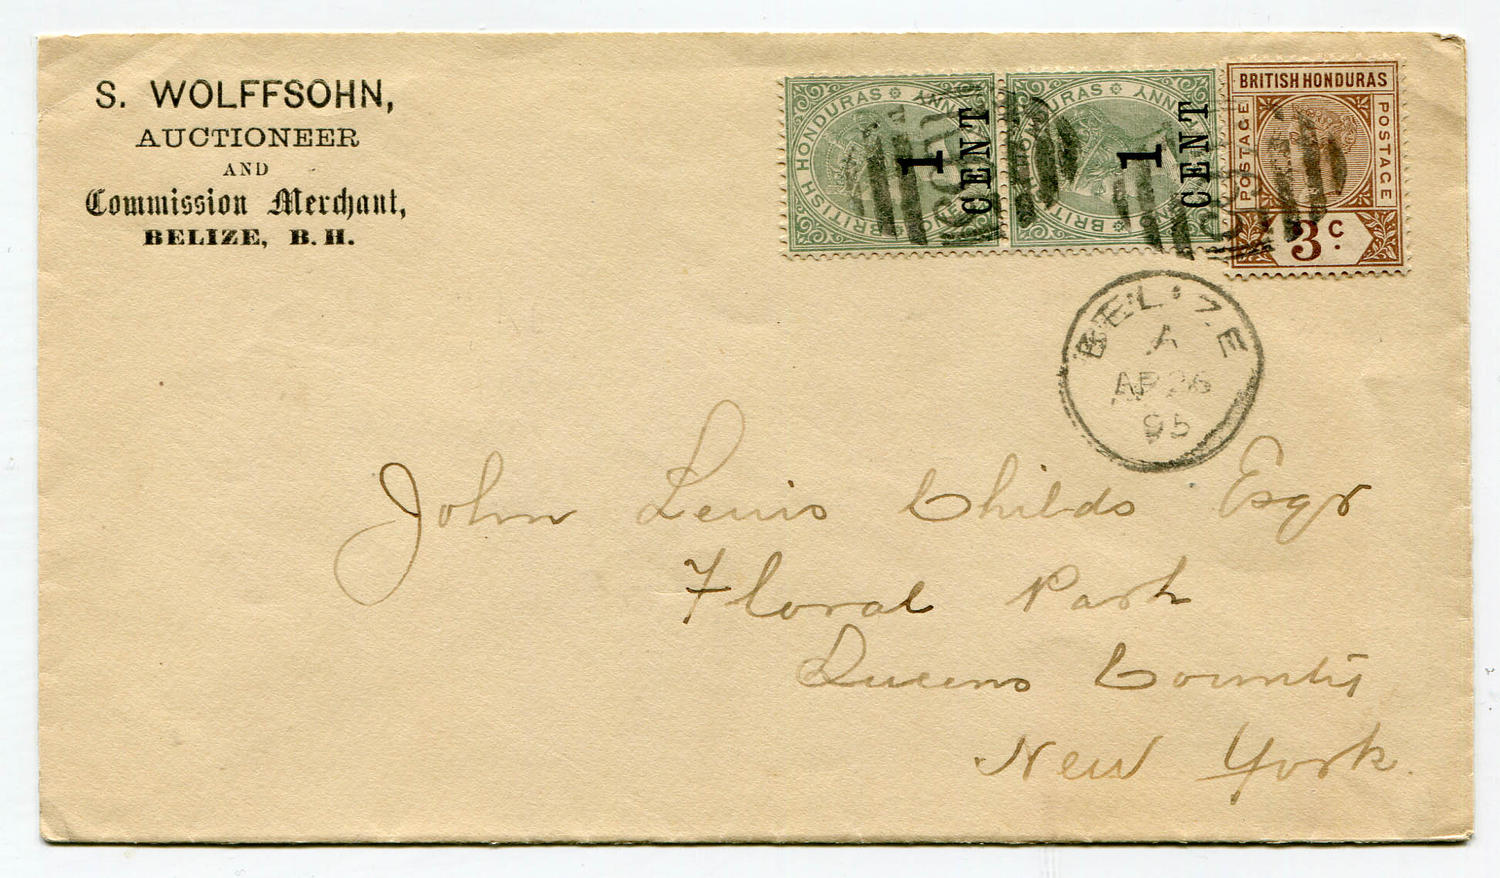 S. WOLFFSOHN,
AUCTIONEER
AND
Commission Merchant,
BELIZE, B. H.
BRITISH HONDURAS NNY
1
CENT
URAS NNY
1
CENT
BRITISH HONDURAS
POSTAGE
POSTAGE
3 C.
BELIZE
A
AP 26
95
John Lewis Childs Esqr
Floral Park
Queens County
New York